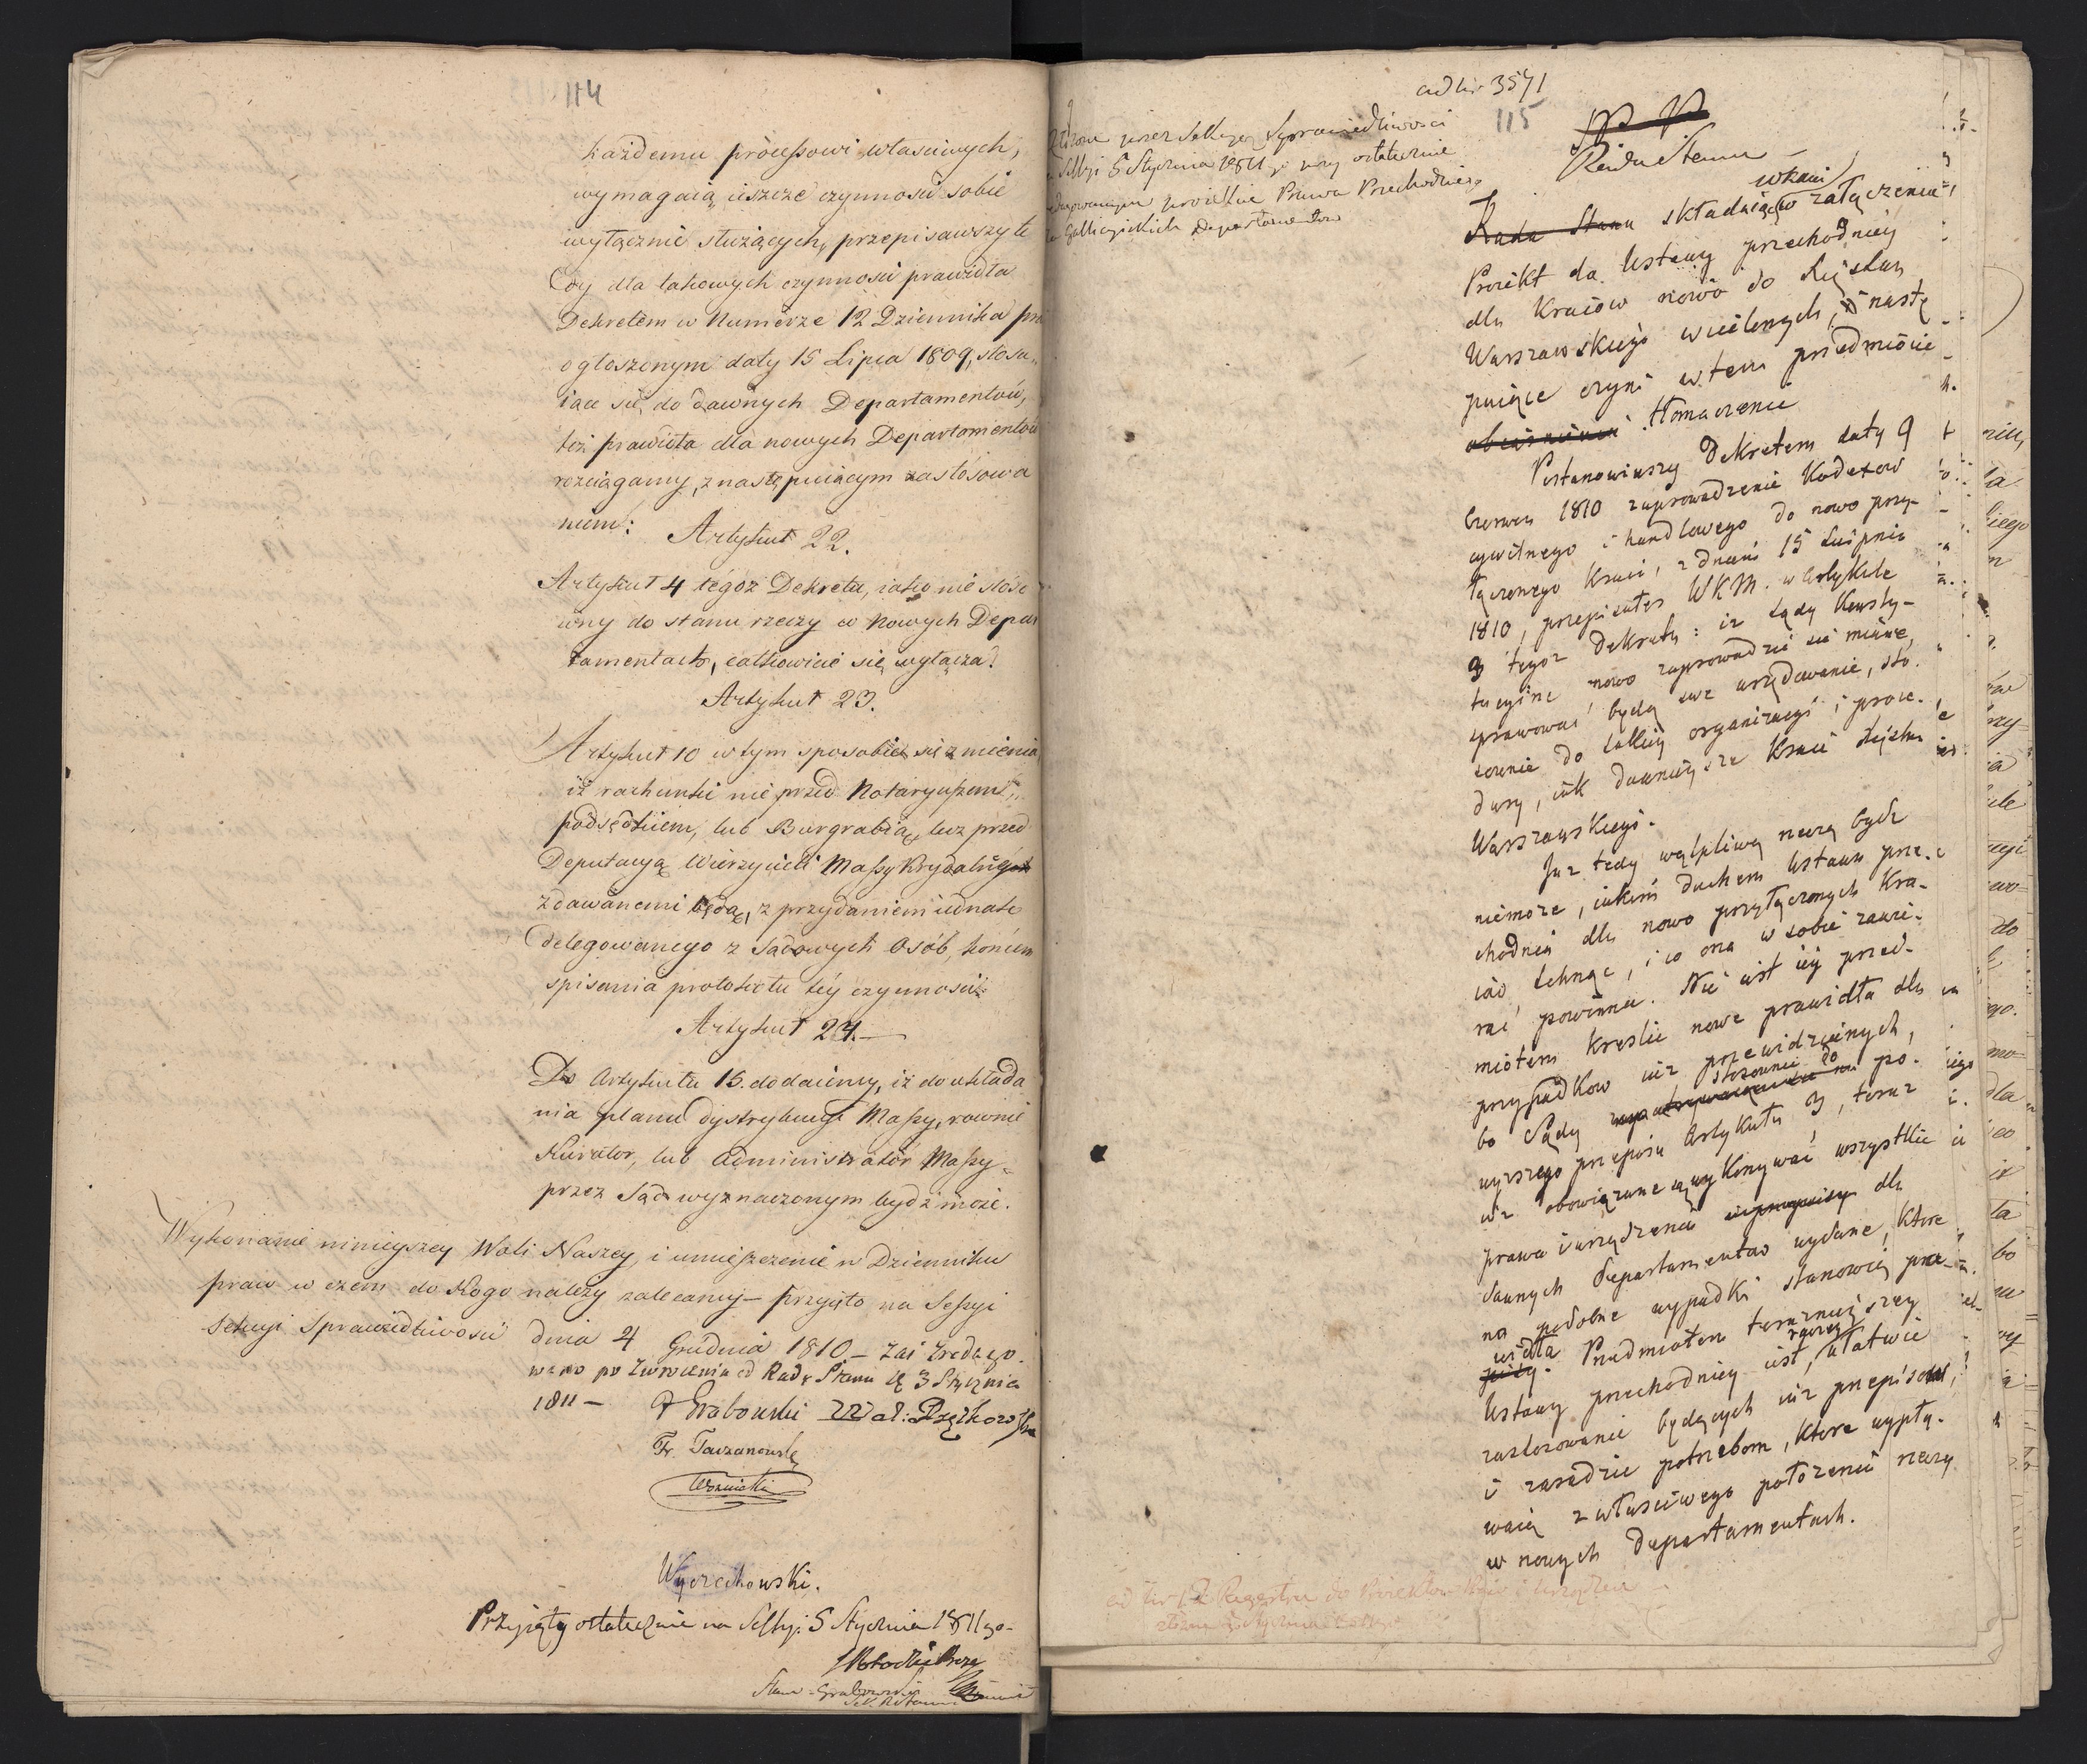 114
każdemu processowi własciwych,
wymagaią ieszcze czynnosci sobie
wyłącznie służących, przepisawszy te
dy dla takowych czynnosci prawidła
Dekretem w Numerze 12 Dziennika pra
ogłoszonym daty 15 Lipca 1809, stosu„
iące się do dawnych Departamentów,
też prawidła dla nowych Departamentów
rozciągamy, z następuiącym zastósowa
niem:
Artykuł 22.
Artykuł 4 tegoż Dekretu, iako nie stóso
wny do stanu rzeczy w Nowych Depar
tamentach, całkowicie się wyłącza.
Artykuł 23.
Artykuł 10 w tym sposobie się zmienia,
iż rachunki nie przed Notaryuszem,
podsędkiem, lub Burgrabią, lecz przed
Deputacyą Wierzycieli Massy Krydalnéy
zdawanemi będą, z przydaniem iednak
delegowanego z Sądowych Osób, końcem
spisania protokołu téy czynności.
Artykuł 24.
Do Artykułu 15. dodaiemy, iż do układa
nia planu dystrybucyi Massy, rownie
Kurator, lub Administrator Massy
przez Sąd wyznaczonym bydź może.
Wykonanie ninieyszey Woli Naszey, i umieszczenie w Dzienniku
praw w czem do Kogo należy zalecamy – Przyięto na Sessyi
Sekcyi Sprawiedliwosci dnia 4 Grudnia 1810 – zaś zredago
wano po zwróceniu od Rady Stanu d. 3 Stycznia
1811 –
Grabowski
Fr. Taczanowski
Woznicki
Wyczechowski.
Przyięty ostatecznie na Sessyi 5 Stycznia 1811 go –
Stan. Grabowski
Sek. R. Stanu
ad Nr 3571
115
Złożone przez Sekcyą Sprawiedliwości
na Sessyi 5 Stycznia 1811 go przy ostatecznie
zredagowanym proiekcie Prawa Przechodniego
dla Gallicyiskich Departamentow
Rada Stanu
Rada Stanu składaiąc w załączeniu
WKMci
Proiekt do Ustawy przechodniéy
dla Kraiów nowo do Xięstwa
Warszawskiego wcielonych, nastę
puiące czyni w tem przedmiocie
obiaśnienie tłomaczenie
Postanowiwszy Dekretem daty 9
Czerwca 1810 zaprowadzenie Kodexow
cywilnego i handlowego do nowo przy-
łączonego Kraiu, z dniem 15 Sierpnia
1810, przepisałeś WKM. w Artykule
3 tegoż Dekretu: iż Sądy Konsty-
tucyine nowo zaprowadzić się miane,
sprawować będą swe urzędowanie, sto-
sownie do całkiéy organizacyi i proce-
dury, iak dawnieysze Kraie Xięstwa
Warszawskiego.
Już tedy wątpliwą rzeczą bydź
niemoże, iakim duchem Ustawa prze-
chodnia dla nowo przyłączonych Kra-
iów tchnąć, i co ona w sobie zawie-
rać powinna. Nie iest iéy przed-
miotem kreslić nowe prawidła dla
przypadkow iuż przewidzianych,
bo Sądy stosownie do po-
wyższego przepisu Artykułu 3, teraz
iuż obowiązane są wykonywać wszystkie
prawa i urządzenia dla
dawnych Departamentow wydane, które
na podobne wypadki stanowią pra-
widła. Przedmiotem teraznieyszey
Ustawy przechodniey iest raczey, ułatwić
zastosowanie będących iuż przepisow,
i zaradzić potrzebom, ktore wypły-
waią z własciwego położenia rzeczy
w nowych Departamentach.